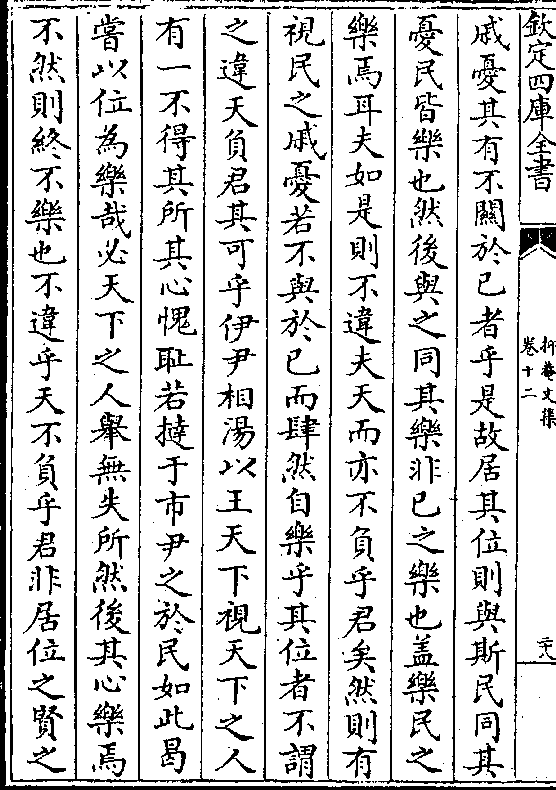 欽定四庫全書
卷十二
文集
戚憂其有不關於已者乎是故居其位則與斯民同其
憂民皆樂也然後與之同其樂非已之樂也盖樂民之
樂焉耳夫如是則不違夫天而亦不負乎君矣然則有
視民之戚憂若不與於已而肆然自樂乎其位者不謂
之違天負君其可乎伊尹相湯以王天下視天下之人
有一不得其所其心愧耻若撻于市尹之於民如此曷
嘗以位為樂哉必天下之人舉無失所然後其心樂焉
不然則終不樂也不違乎天不負乎君非居位之賢之